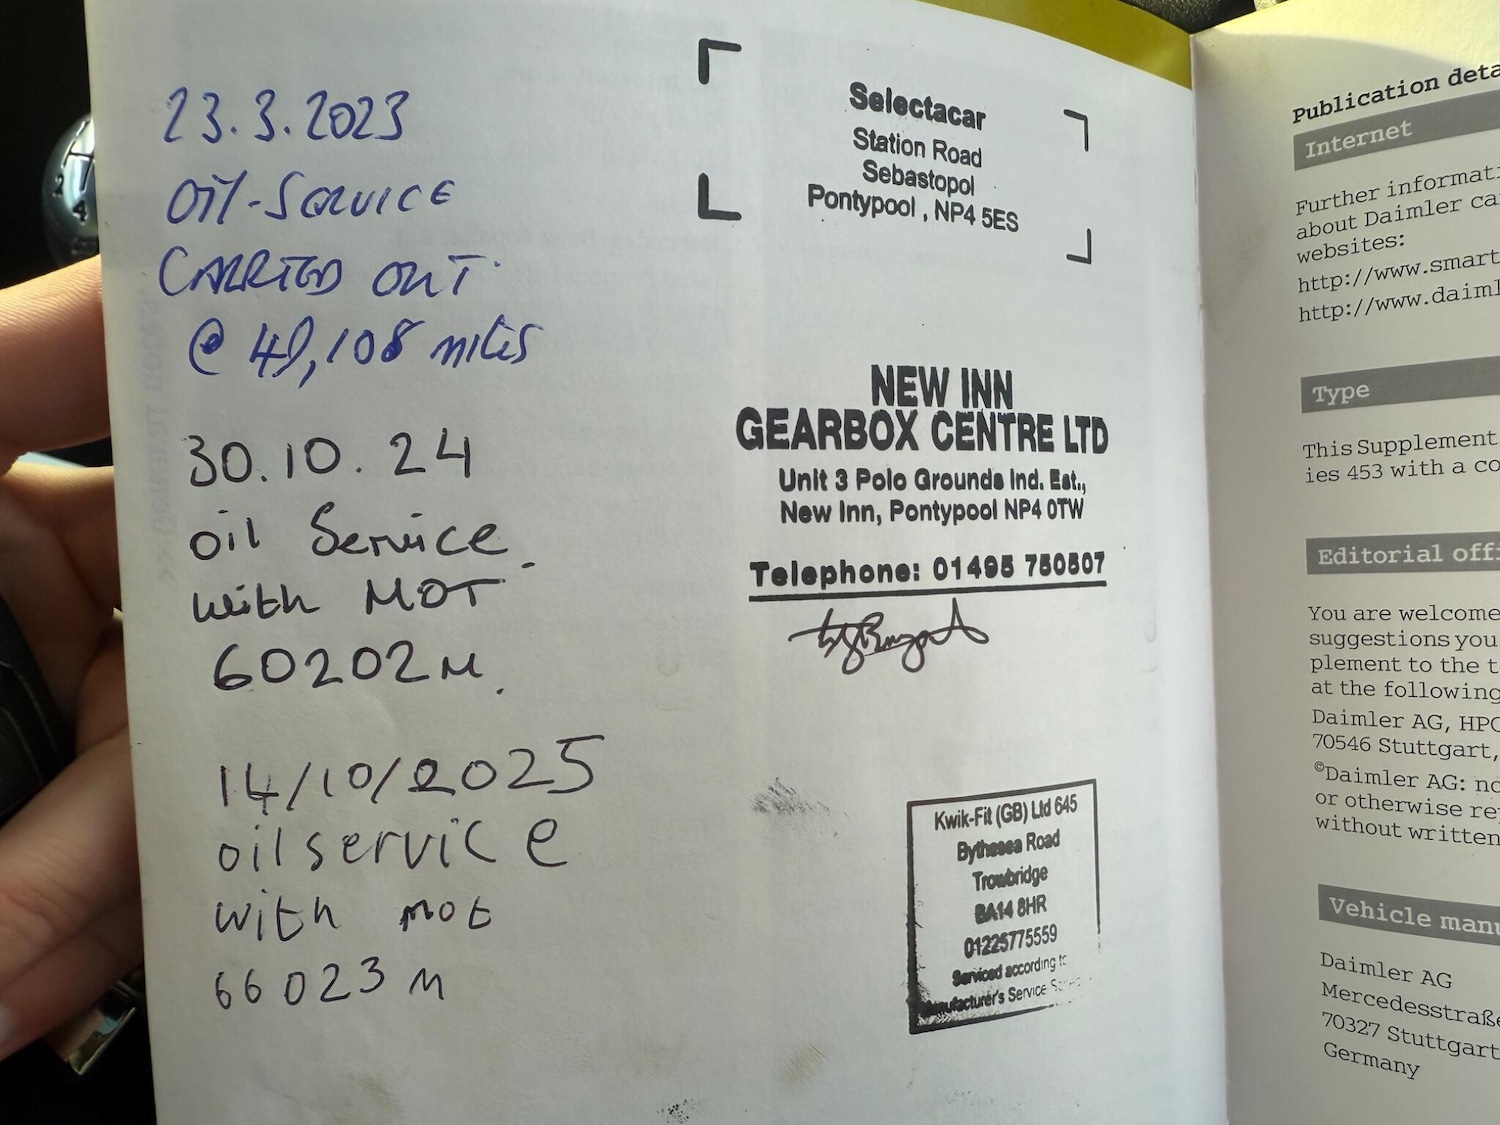 23.3.2023
OIL-SERVICE
CARRIED OUT
@ 49,108 miles
Selectacar
Station Road
Sebastopol
Pontypool , NP4 5ES
30.10.24
oil Service
with MOT
60202 M.
NEW INN
GEARBOX CENTRE LTD
Unit 3 Polo Grounds Ind. Est.,
New Inn, Pontypool NP4 0TW
Telephone: 01495 750507
14/10/2025
oil service
with mot
66023 M
Kwik-Fit (GB) Ltd 645
Bythesea Road
Trowbridge
BA14 8HR
01225775559
Serviced according to
Manufacturer's Service
Publication deta
Internet
Further informati
about Daimler ca
websites:
http://www.smart
http://www.daiml
Type
This Supplement
ies 453 with a co
Editorial offi
You are welcome
suggestions you
plement to the t
at the following
Daimler AG, HPC
70546 Stuttgart,
©Daimler AG: no
or otherwise re
without written
Vehicle manu
Daimler AG
Mercedesstraße
70327 Stuttgart
Germany